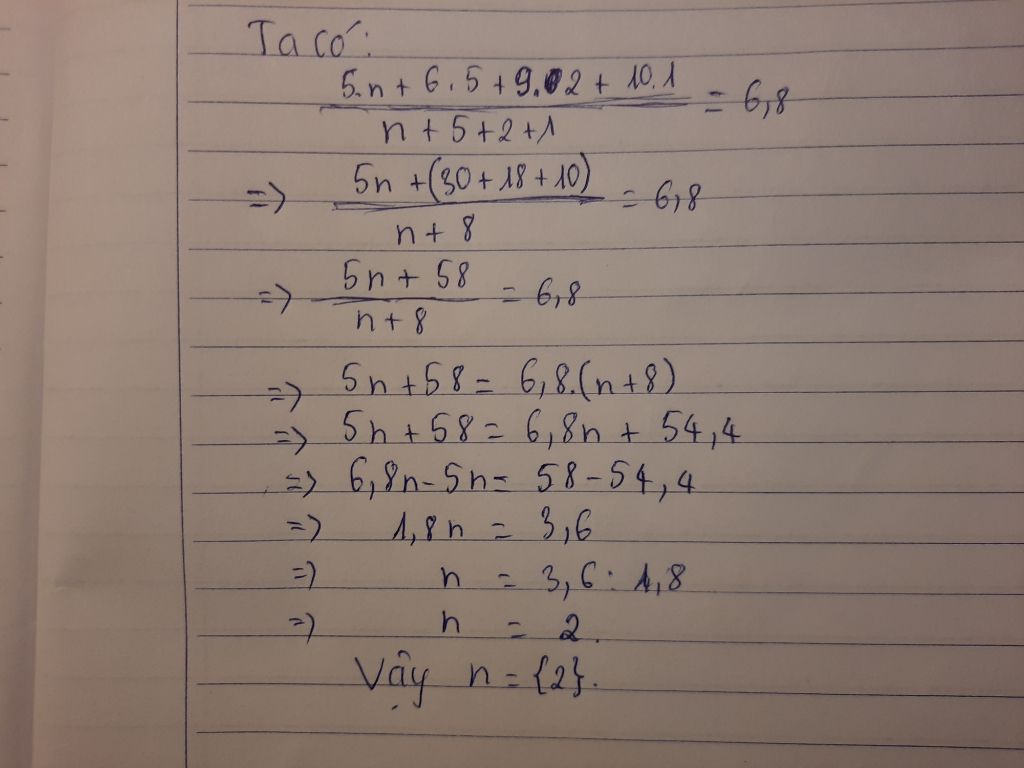 Ta có:
5.n + 6.5 + 9.2 + 10.1 / n + 5 + 2 + 1 = 6,8
=> 5n + (30 + 18 + 10) / n + 8 = 6,8
=> 5n + 58 / n + 8 = 6,8
=> 5n + 58 = 6,8.(n + 8)
=> 5n + 58 = 6,8n + 54,4
=> 6,8n - 5n = 58 - 54,4
=> 1,8n = 3,6
=> n = 3,6 : 1,8
=> n = 2.
Vậy n = {2}.